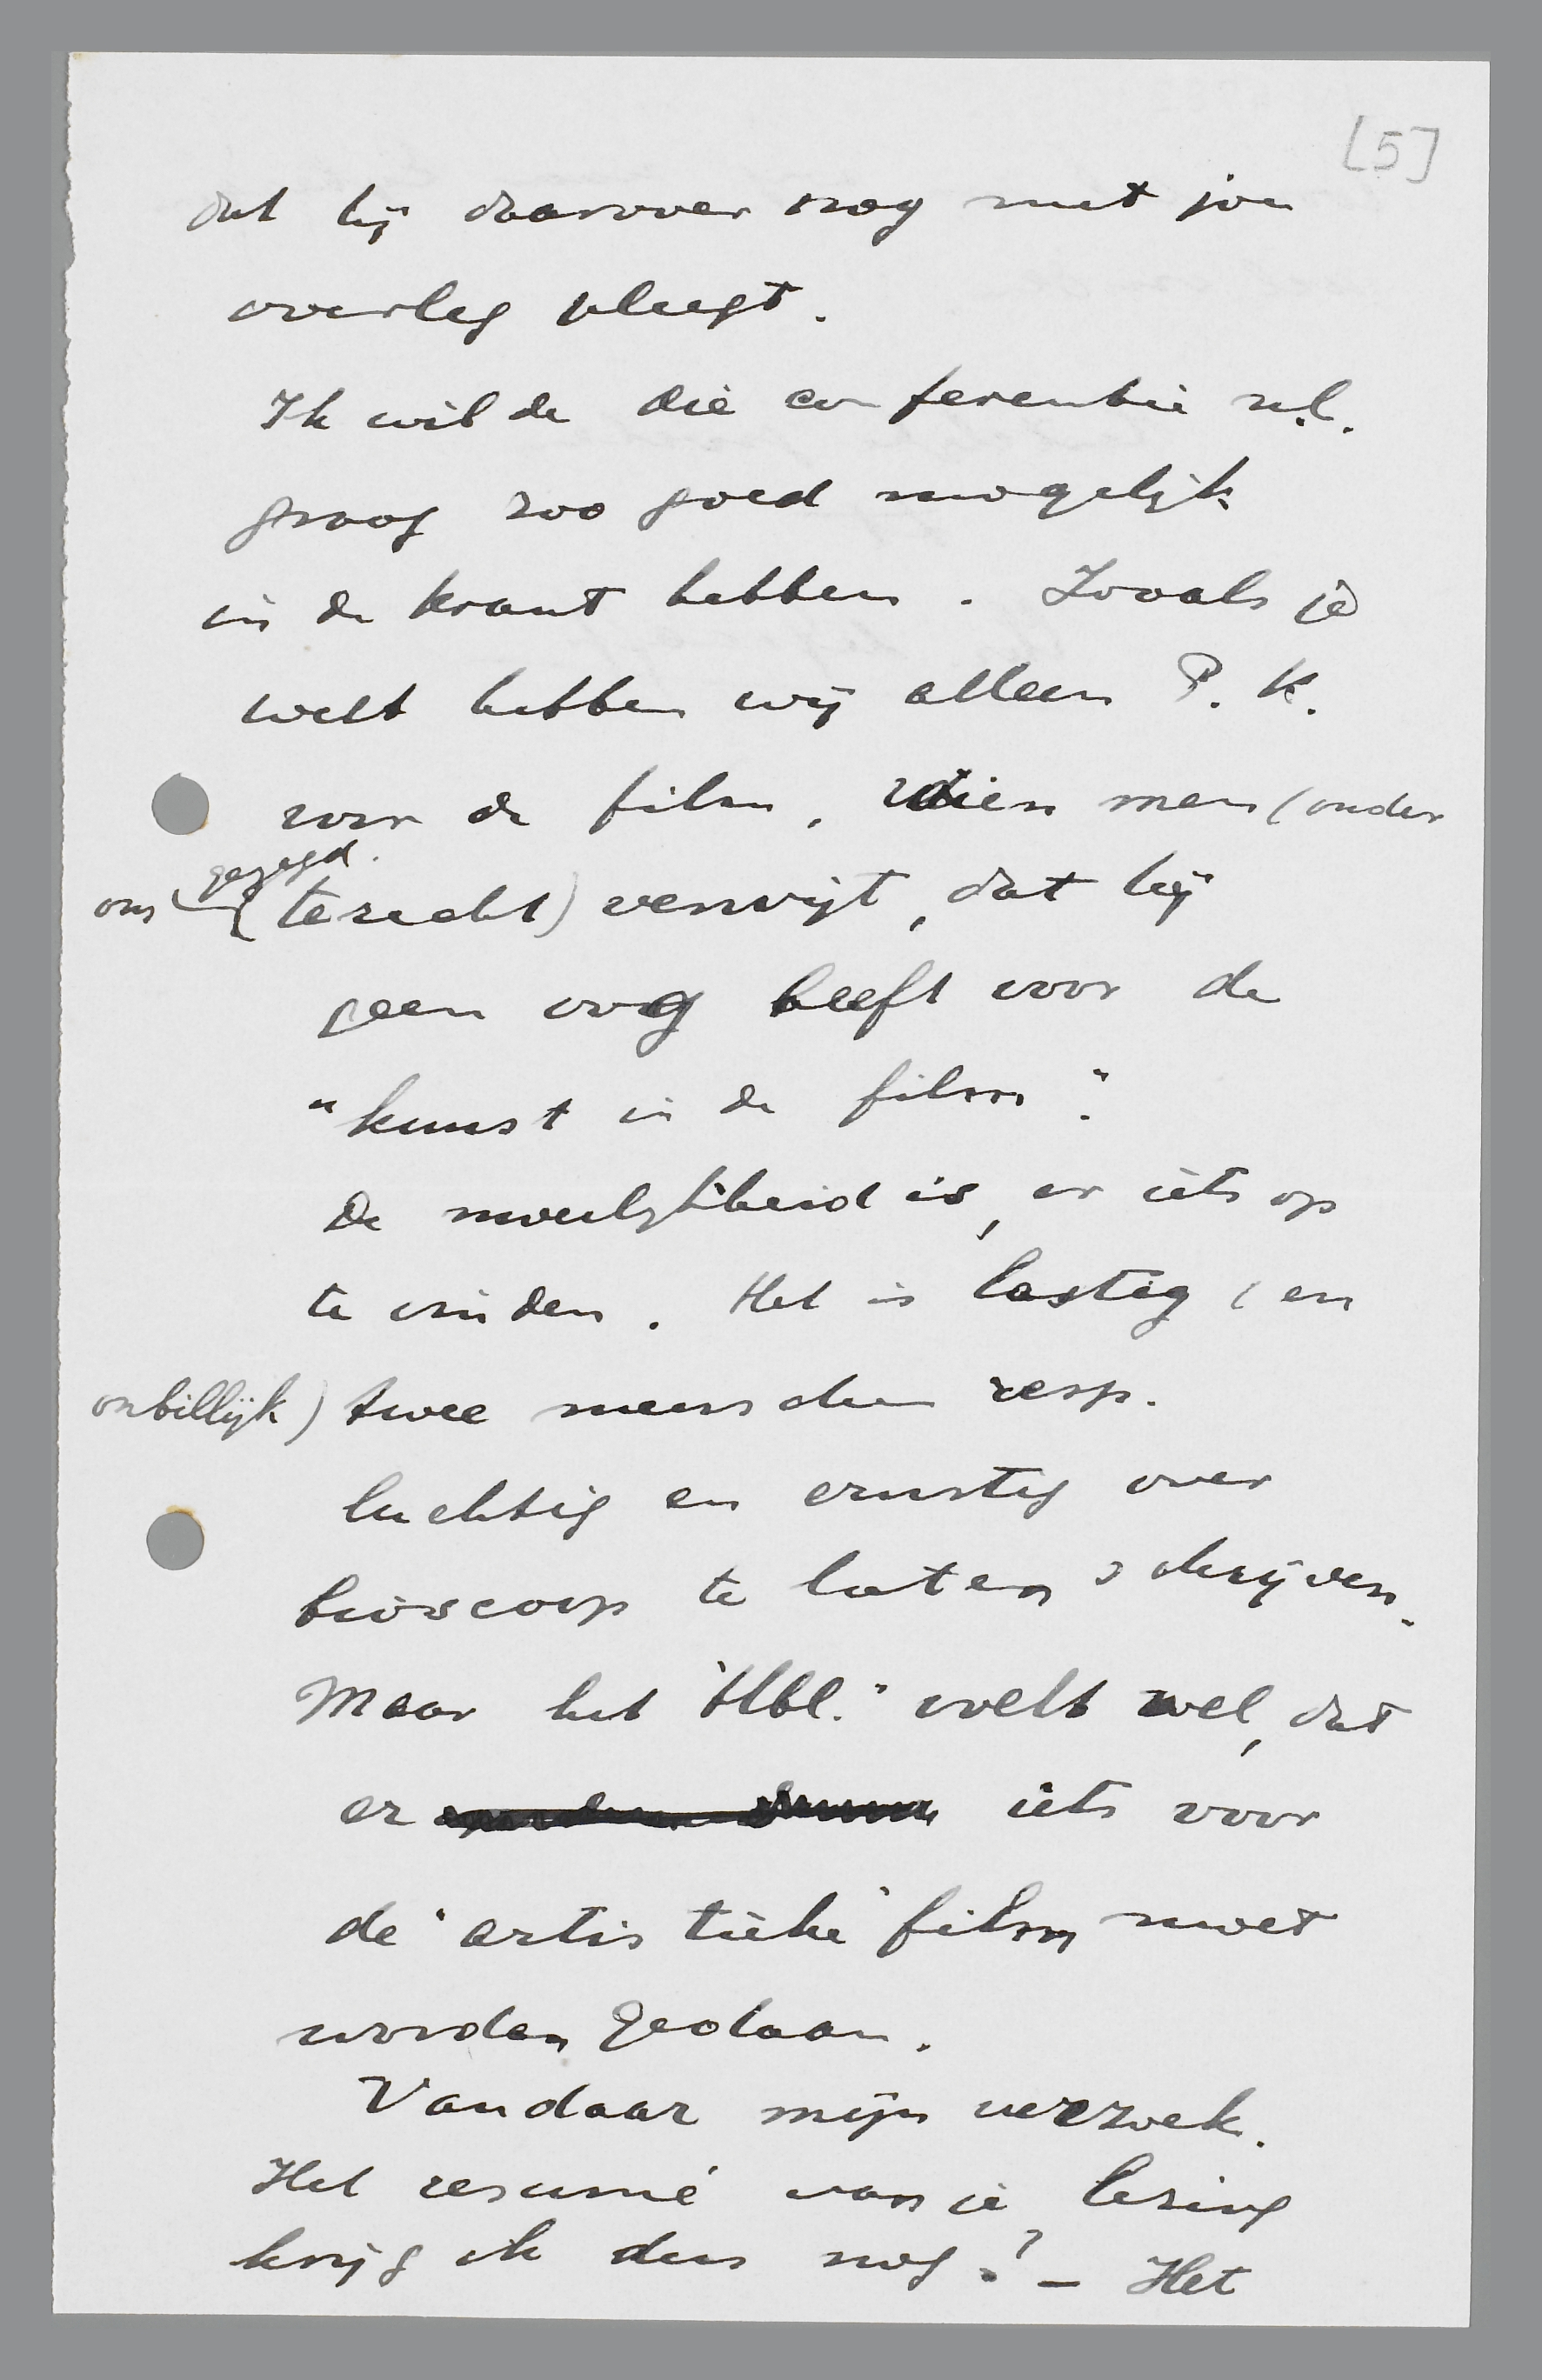 [5]
dat hij daarover nog met jou
overleg pleegt.
Ik wilde die conferentie n.l.
graag zoo goed mogelijk
in de krant hebben. Zooals je
weet hebben wij alleen P. K.
voor de film, dien men (onder
gezegd.
ons (terecht) verwijt, dat hij
geen oog heeft voor de
"kunst in de film".
De moeilijkheid is, er iets op
te vinden. Het is lastig (en
onbillijk) twee menschen resp.
luchtig en ernstig over
bioscoop te laten schrijven.
Maar het "Hbl." voelt wel, dat
er iets voor
de "artistieke" film moet
worden gedaan.
Vandaar mijn verzoek.
Het resumé van je lezing
krijg ik dus nog? – Het